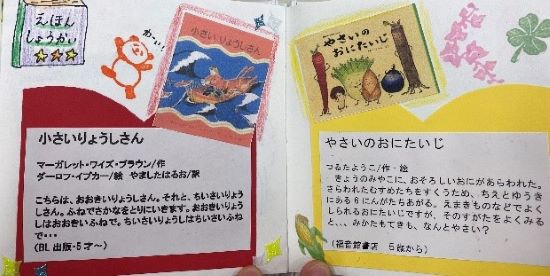 えほん
しょうかい
かーいー
小さいりょうしさん
小さいりょうしさん
マーガレット・ワイズ・ブラウン/作
ダーロフ・イプカー/絵　やましたはるお/訳
こちらは、おおきいりょうしさん。それと、ちいさいりょう
しさん。ふねでさかなをとりにいきます。おおきいりょうし
はおおきいふねで。ちいさいりょうしはちいさいふね
で・・・
〈BL出版・5才～〉
やさいの
おにたいじ
やさいのおにたいじ
つるたようこ/作・絵
きょうのみやこに、おそろしいおにがあらわれた。
さらわれたむすめたちをすくうため、ちえとゆうき
にある6にんがたちあがる。えまきものなどでよく
しられるおにたいじですが、そのすがたをよくみる
と・・、みかたもてきも、なんとやさい?
(福音館書店　5歳から)